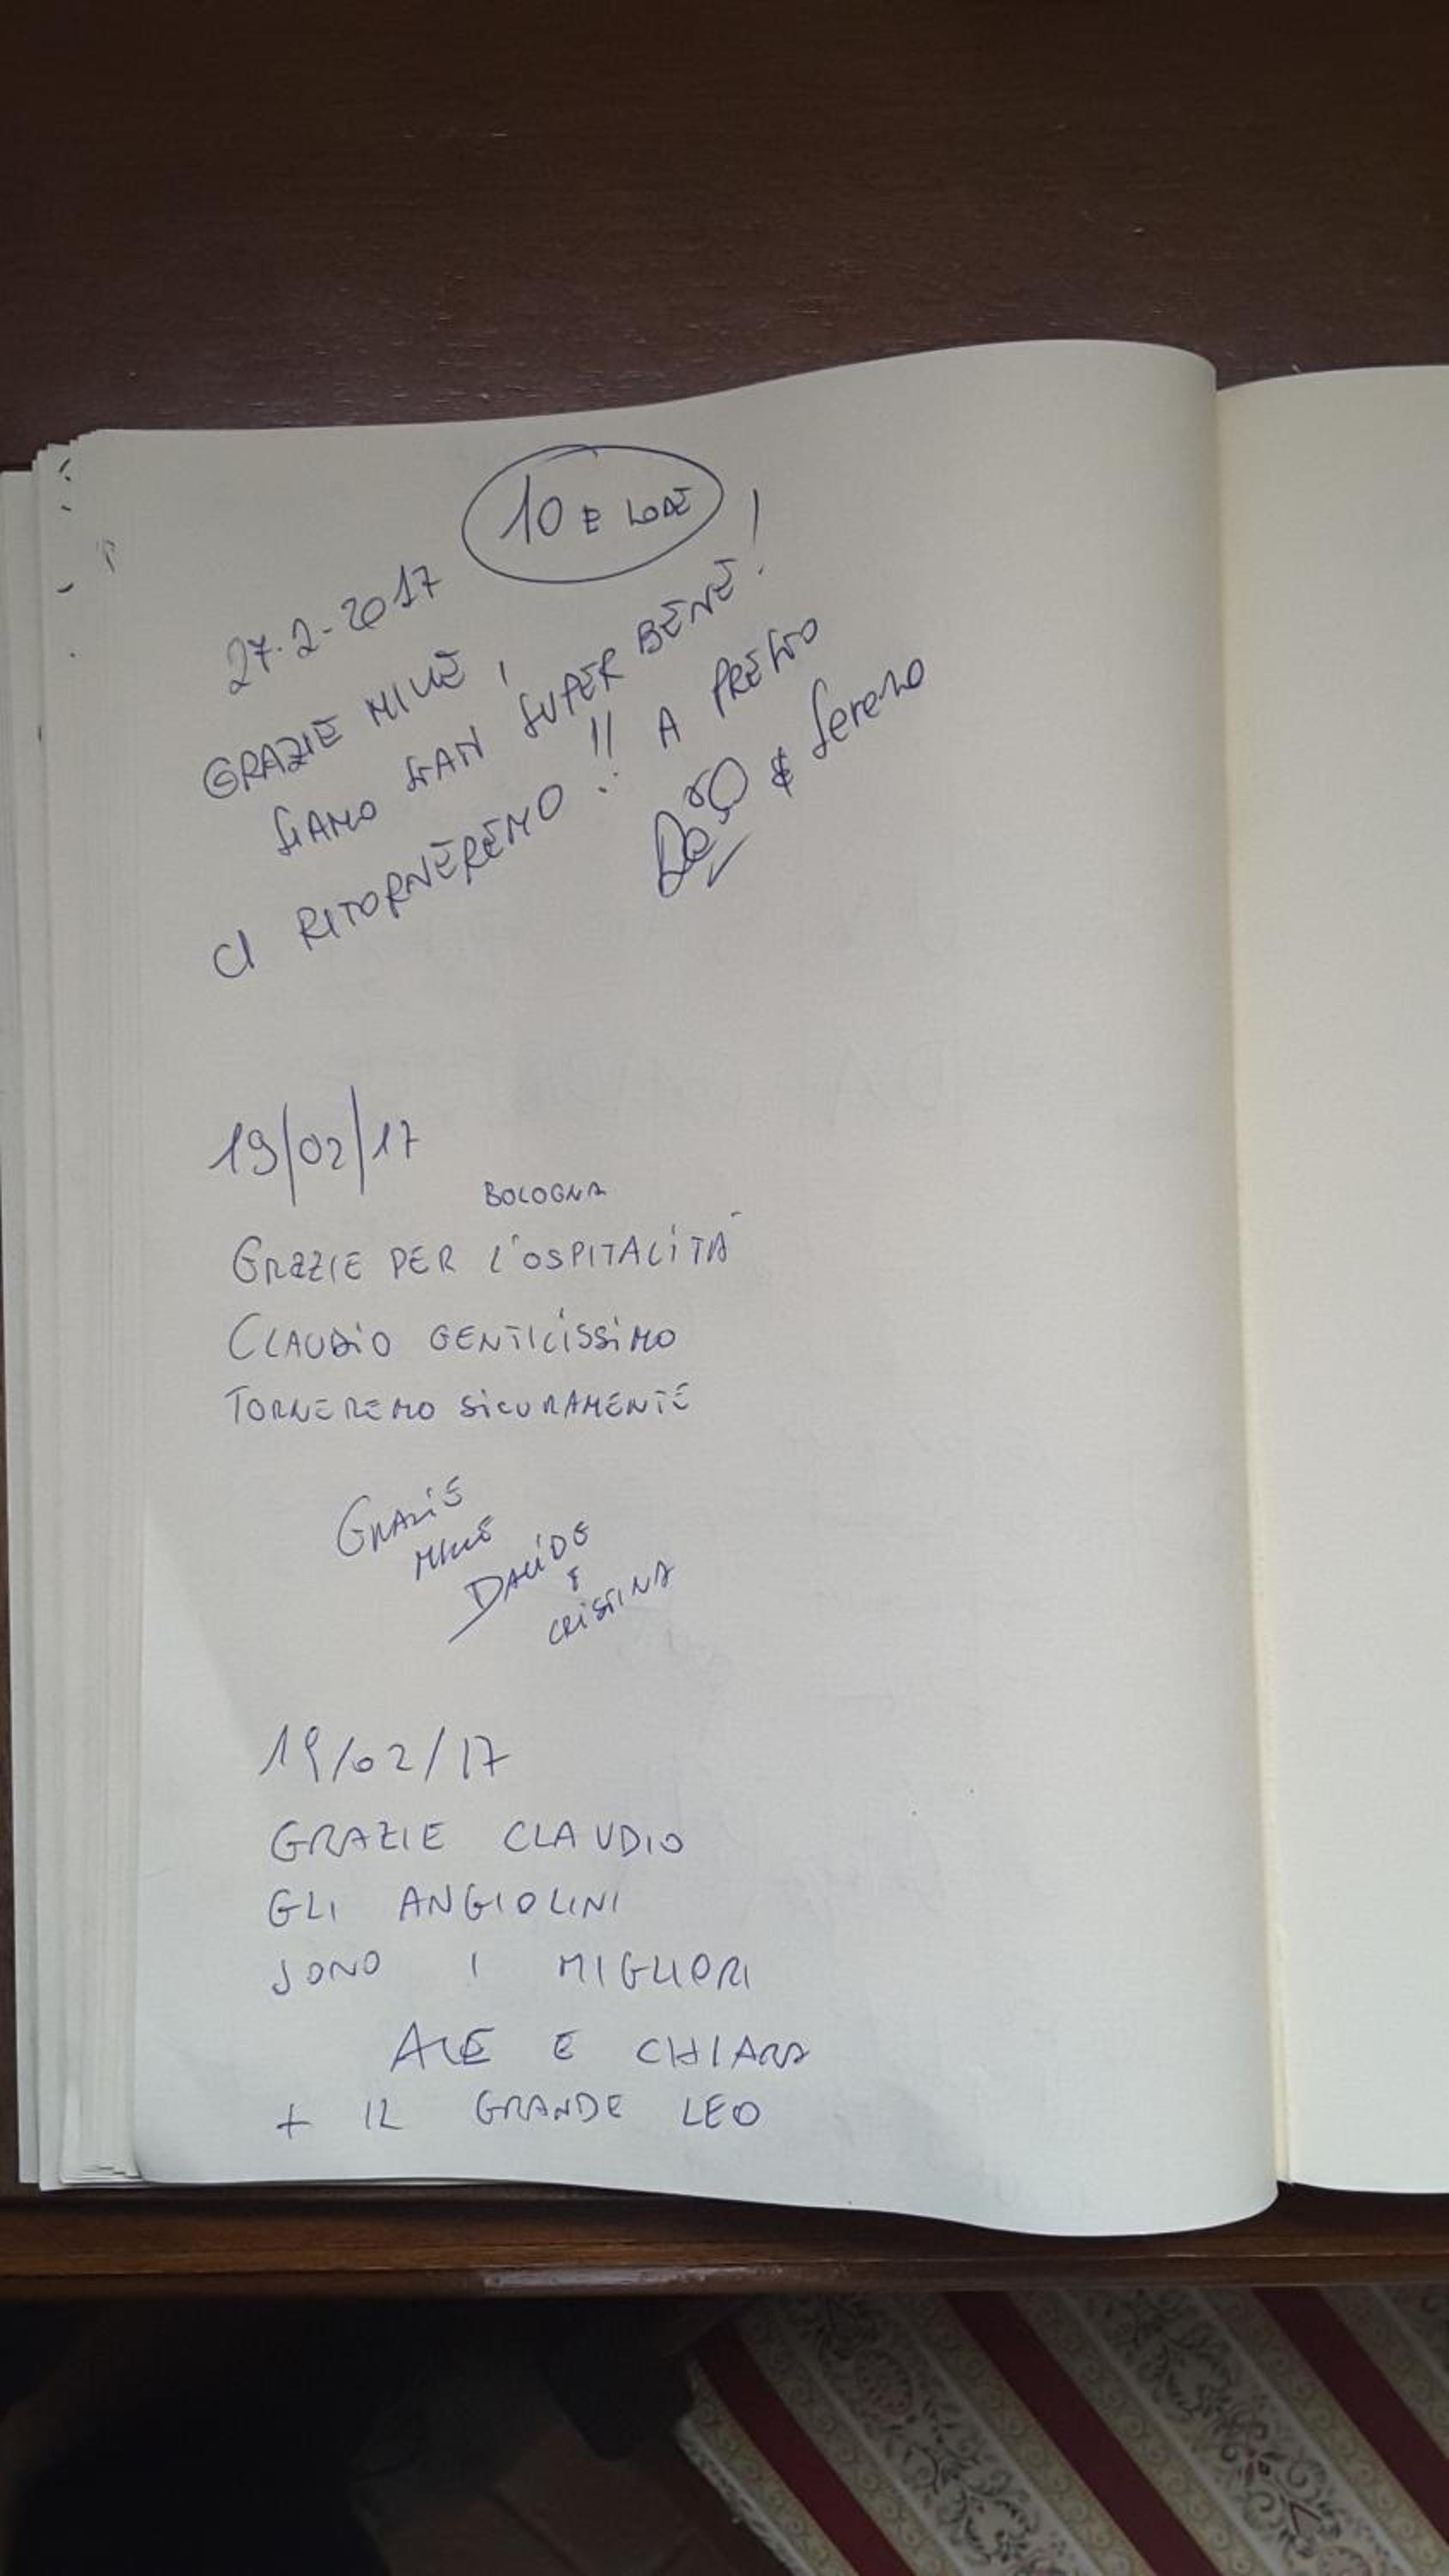 10 E LODE
27.2-2017
GRAZIE MILLE!
SIAMO STATI SUPER BENE!
CI RITORNEREMO!! A PRESTO
& Serena
19/02/17
BOLOGNA
GRAZIE PER L'OSPITALITÀ
CLAUDIO GENTILISSIMO
TORNEREMO SICURAMENTE
GRAZIE
MILLE
DAVIDE
E
CRISTINA
19/02/17
GRAZIE CLAUDIO
GLI ANGIOLINI
SONO I MIGLIORI
ALE E CHIARA
+ IL GRANDE LEO